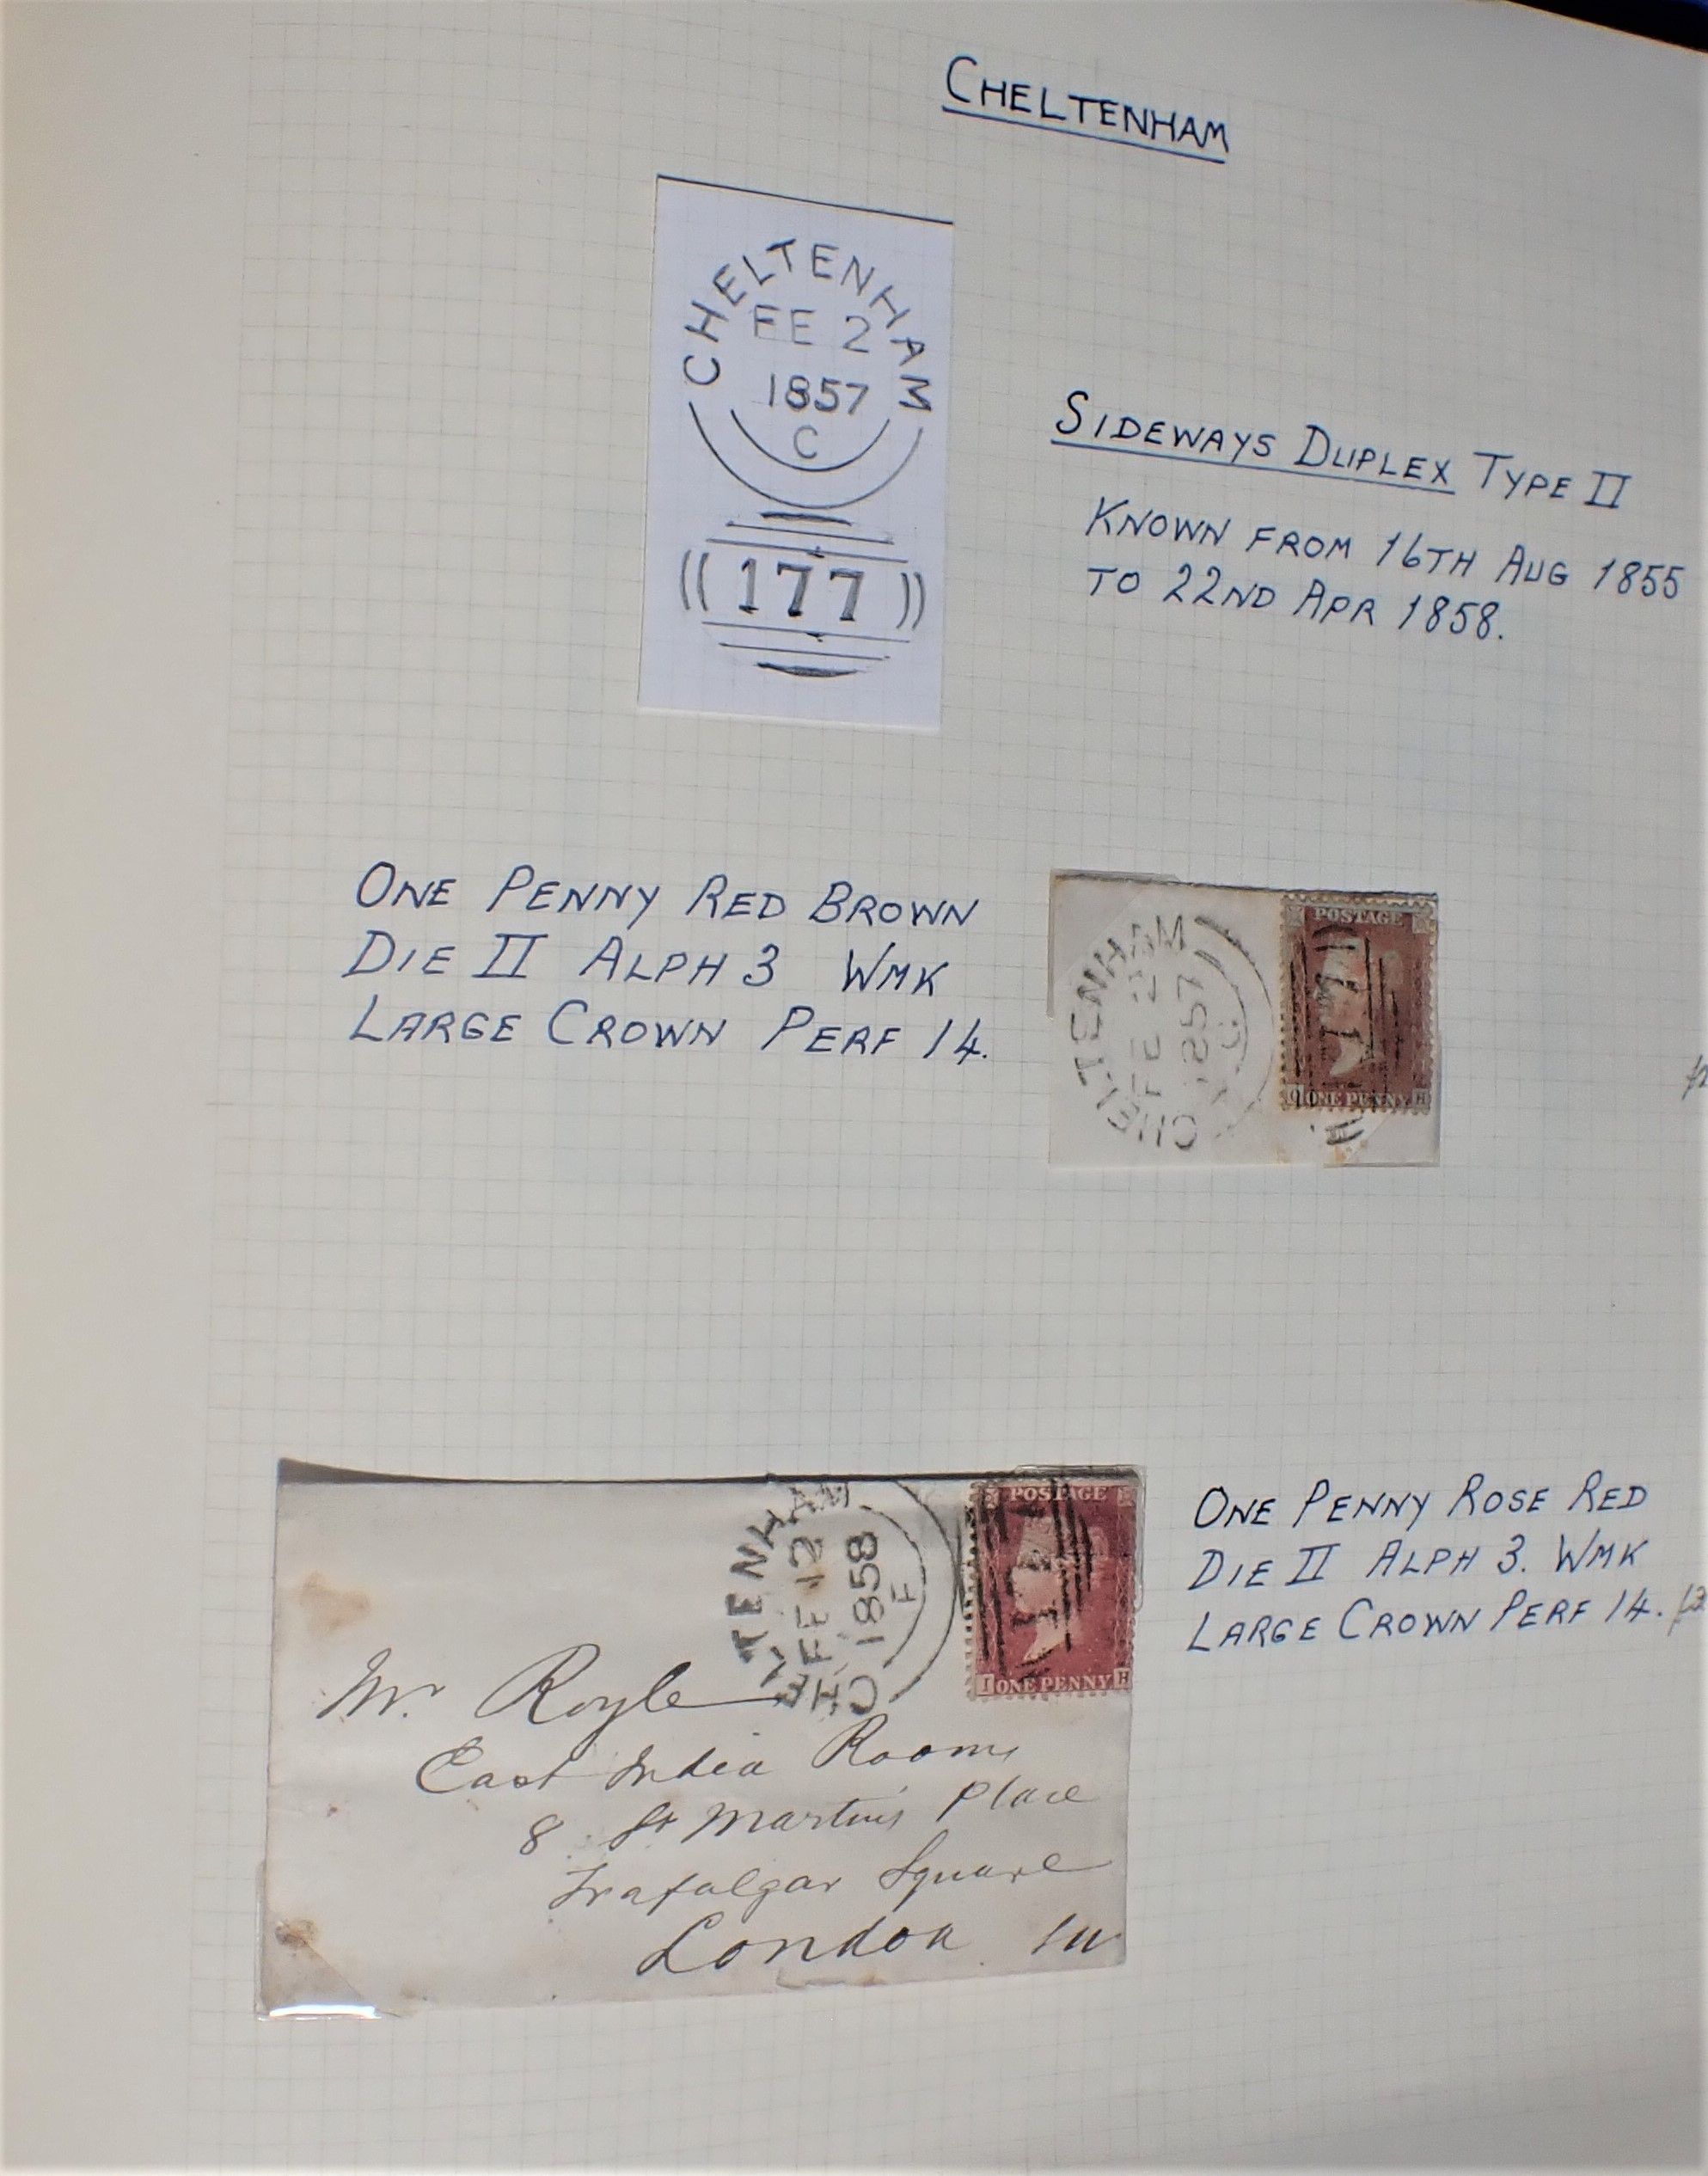 CHELTENHAM
CHELTENHAM
FE 2
1857
C
177
SIDEWAYS DUPLEX TYPE II
KNOWN FROM 16TH AUG 1855
TO 22ND APR 1858.
ONE PENNY RED BROWN
DIE II ALPH 3 WMK
LARGE CROWN PERF 14.
CHELTENHAM
FE 2
1857
C
POSTAGE
177
ONE PENNY H
CHELTENHAM
FE 12
1858
F
POSTAGE
177
I ONE PENNY H
ONE PENNY ROSE RED
DIE II ALPH 3. WMK
LARGE CROWN PERF 14.
Mr. Royle
East India Rooms
8 St Martins Place
Trafalgar Square
London SW